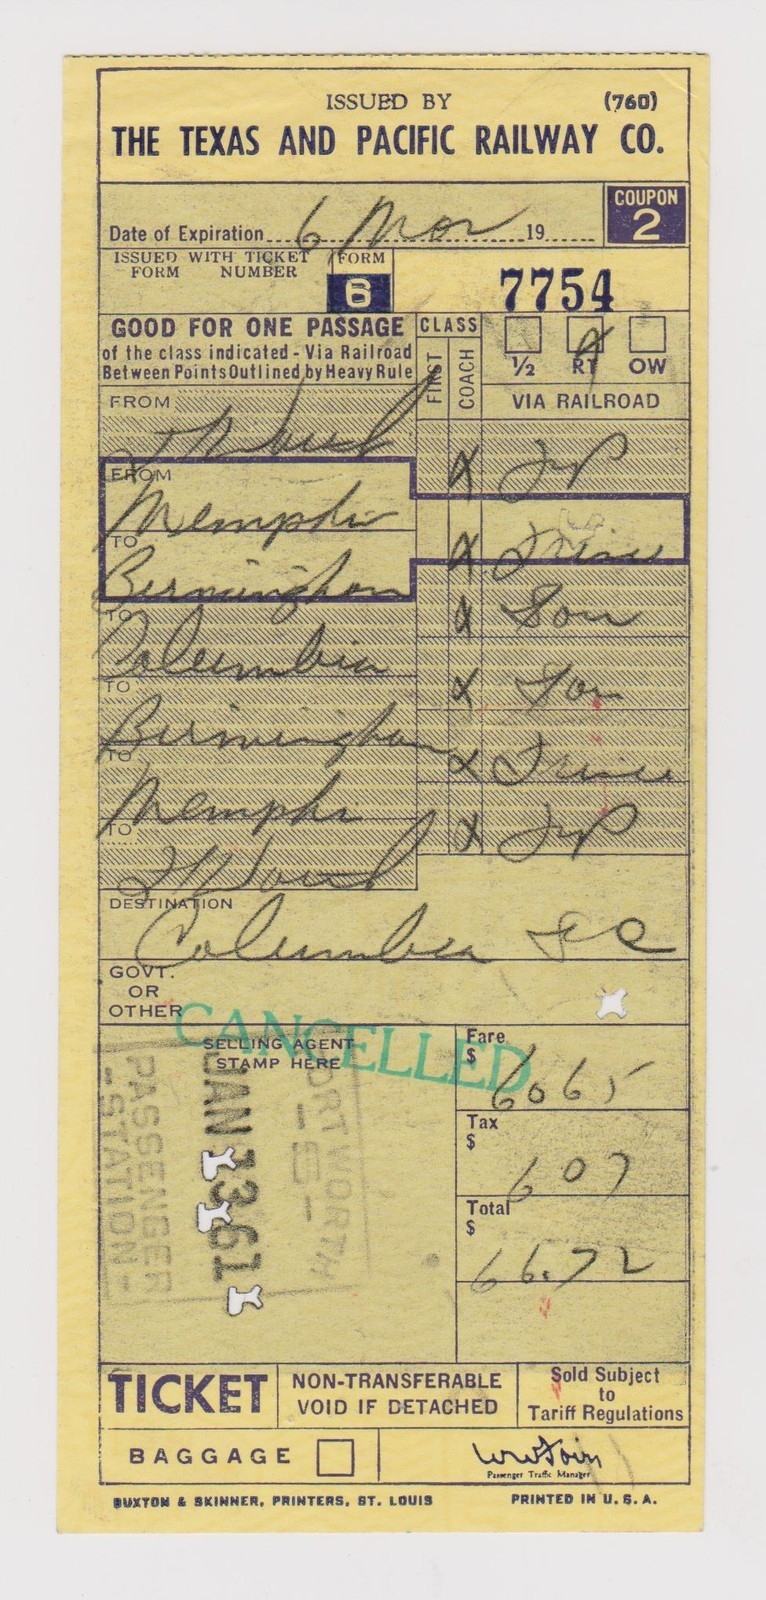 ISSUED BY (760)
THE TEXAS AND PACIFIC RAILWAY CO.
Date of Expiration 6 Mar 19 COUPON 2
ISSUED WITH TICKET
FORM NUMBER
FORM 6
7754
GOOD FOR ONE PASSAGE
of the class indicated - Via Railroad
Between Points Outlined by Heavy Rule
CLASS
FIRST COACH
½ RT OW
VIA RAILROAD
FROM
Ft Worth X T&P
FROM
Memphis X Frisco
TO
Birmingham X Sou
TO
Columbia X Sou
TO
Birmingham X Frisco
TO
Memphis X T&P
TO
Ft Worth
DESTINATION
Columbia SC
GOVT.
OR
OTHER
CANCELLED
SELLING AGENT
STAMP HERE
FORT WORTH
- 5 -
JAN 13 61
PASSENGER
- STATION -
Fare
$ 60 65
Tax
$ 6 07
Total
$ 66.72
TICKET
NON-TRANSFERABLE
VOID IF DETACHED
Sold Subject
to
Tariff Regulations
BAGGAGE
Passenger Traffic Manager
BUXTON & SKINNER, PRINTERS, ST. LOUIS PRINTED IN U. S. A.